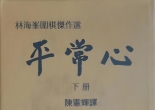 林海峯圍棋傑作選
平常心
下册
陳憲輝譯